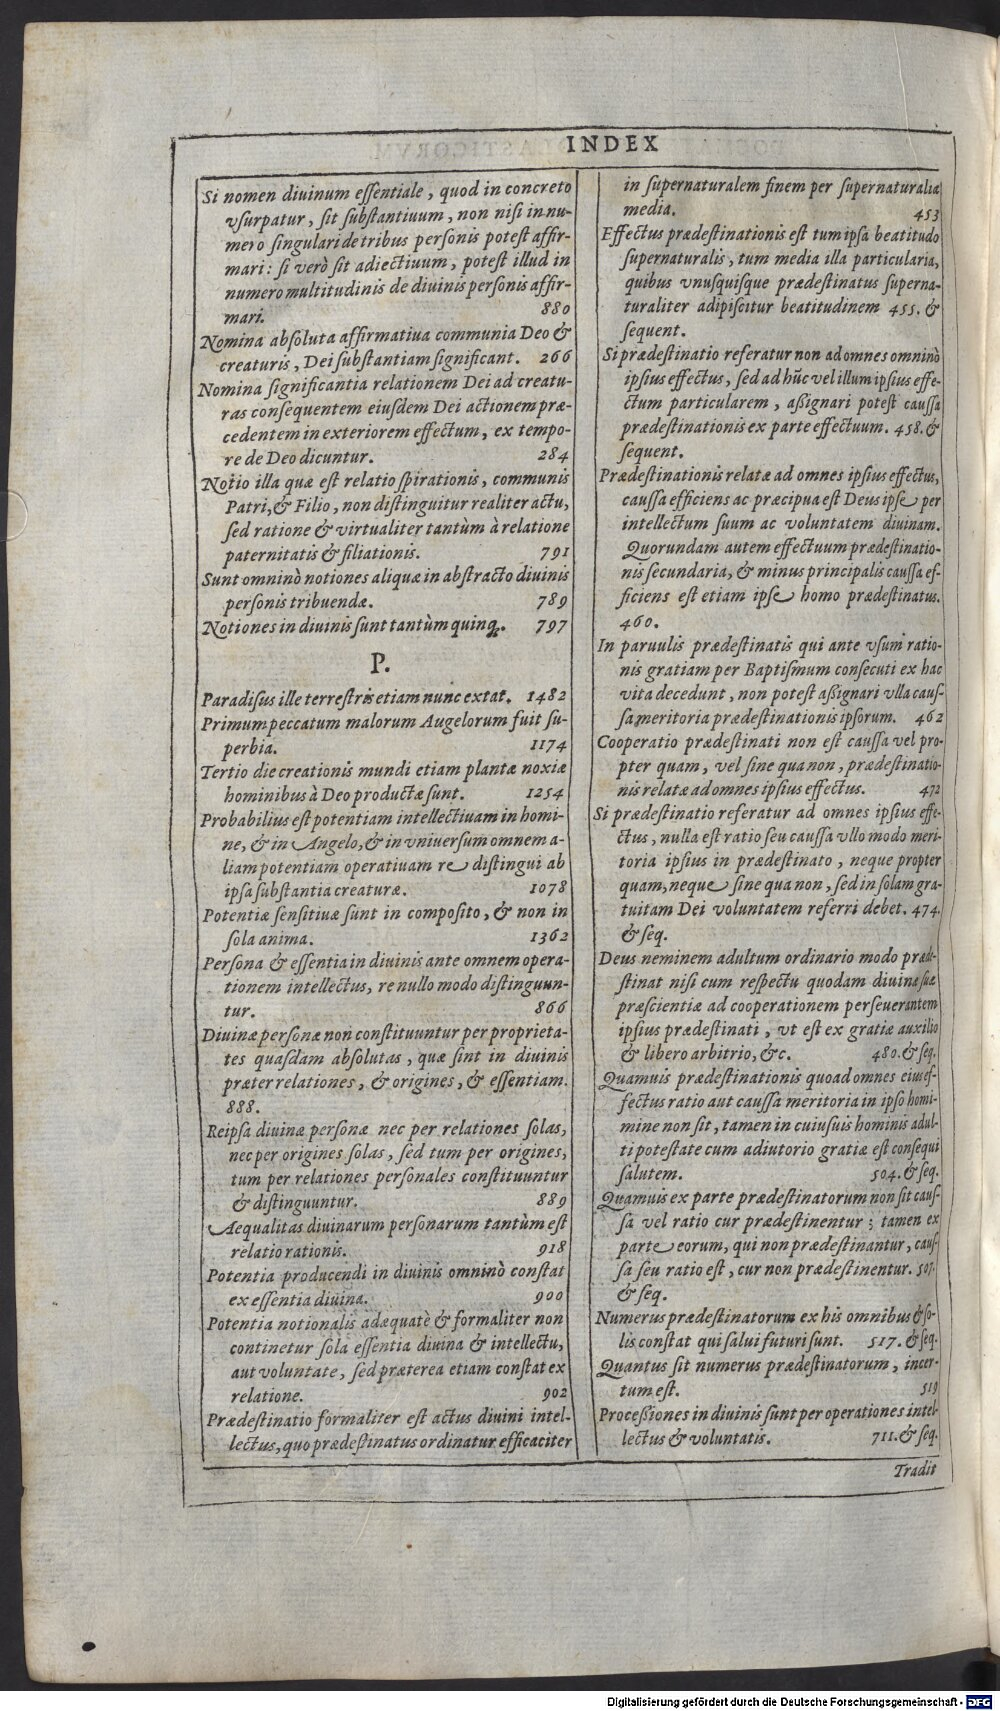 INDEX
Si nomen diuinum eſſentiale, quod in concreto
vſurpatur, ſit ſubſtantiuum, non niſi in nu-
mero ſingulari de tribus perſonis poteſt affir-
mari: ſi verò ſit adiectiuum, poteſt illud in
numero multitudinis de diuinis perſonis affir-
mari. 880
Nomina abſoluta affirmatiua communia Deo &
creaturis, Dei ſubſtantiam ſignificant. 266
Nomina ſignificantia relationem Dei ad creatu-
ras conſequentem eiuſdem Dei actionem præ-
cedentem in exteriorem effectum, ex tempo-
re de Deo dicuntur. 284
Notio illa quæ eſt relatio ſpirationis, communis
Patri, & Filio, non diſtinguitur realiter actu,
ſed ratione & virtualiter tantùm à relatione
paternitatis & filiationis. 791
Sunt omninò notiones aliquæ in abſtracto diuinis
perſonis tribuendæ. 789
Notiones in diuinis ſunt tantùm quinq. 797
P.
Paradiſus ille terreſtris etiam nunc extat. 1482
Primum peccatum malorum Augelorum fuit ſu-
perbia. 1174
Tertio die creationis mundi etiam plantæ noxiæ
hominibus à Deo productæ ſunt. 1254
Probabilius eſt potentiam intellectiuam in homi-
ne, & in Angelo, & in vniuerſum omnem a-
liam potentiam operatiuam re diſtingui ab
ipſa ſubſtantia creaturæ. 1078
Potentiæ ſenſitiuæ ſunt in compoſito, & non in
ſola anima. 1362
Perſona & eſſentia in diuinis ante omnem opera-
tionem intellectus, re nullo modo diſtinguun-
tur. 866
Diuinæ perſonæ non conſtituuntur per proprieta-
tes quaſdam abſolutas, quæ ſint in diuinis
præter relationes, & origines, & eſſentiam.
888.
Reipſa diuinæ perſonæ nec per relationes ſolas,
nec per origines ſolas, ſed tum per origines,
tum per relationes perſonales conſtituuntur
& diſtinguuntur. 889
Aequalitas diuinarum perſonarum tantùm eſt
relatio rationis. 918
Potentia producendi in diuinis omninò conſtat
ex eſſentia diuina. 900
Potentia notionalis adæquatè & formaliter non
continetur ſola eſſentia diuina & intellectu,
aut voluntate, ſed præterea etiam conſtat ex
relatione. 902
Prædeſtinatio formaliter eſt actus diuini intel-
lectus, quo prædeſtinatus ordinatur efficaciter
in ſupernaturalem finem per ſupernaturalia
media. 453
Effectus prædeſtinationis eſt tum ipſa beatitudo
ſupernaturalis, tum media illa particularia,
quibus vnuſquiſque prædeſtinatus ſuperna-
turaliter adipiſcitur beatitudinem 455. &
ſequent.
Si prædeſtinatio referatur non ad omnes omninò
ipſius effectus, ſed ad hūc vel illum ipſius effe-
ctum particularem, aßignari poteſt cauſſa
prædeſtinationis ex parte effectuum. 458. &
ſequent.
Prædeſtinationis relatæ ad omnes ipſius effectus,
cauſſa efficiens ac præcipua eſt Deus ipſe per
intellectum ſuum ac voluntatem diuinam.
Quorundam autem effectuum prædeſtinatio-
nis ſecundaria, & minus principalis cauſſa ef-
ficiens eſt etiam ipſe homo prædeſtinatus.
460.
In paruulis prædeſtinatis qui ante vſum ratio-
nis gratiam per Baptiſmum conſecuti ex hac
vita decedunt, non poteſt aßignari vlla cauſ-
ſa meritoria prædeſtinationis ipſorum. 462
Cooperatio prædeſtinati non eſt cauſſa vel pro-
pter quam, vel ſine qua non, prædeſtinatio-
nis relatæ ad omnes ipſius effectus. 472
Si prædeſtinatio referatur ad omnes ipſius effe-
ctus, nulla eſt ratio ſeu cauſſa vllo modo meri-
toria ipſius in prædeſtinato, neque propter
quam, neque ſine qua non, ſed in ſolam gra-
tuitam Dei voluntatem referri debet. 474.
& ſeq.
Deus neminem adultum ordinario modo præde-
ſtinat niſi cum reſpectu quodam diuinæ ſuæ
præſcientiæ ad cooperationem perſeuerantem
ipſius prædeſtinati, vt eſt ex gratiæ auxilio
& libero arbitrio, &c. 480. & ſeq.
Quamuis prædeſtinationis quoad omnes eius ef-
fectus ratio aut cauſſa meritoria in ipſo homi-
mine non ſit, tamen in cuiuſuis hominis adul-
ti poteſtate cum adiutorio gratiæ eſt conſequi
ſalutem. 504. & ſeq.
Quamuis ex parte prædeſtinatorum non ſit cauſ-
ſa vel ratio cur prædeſtinentur; tamen ex
parte eorum, qui non prædeſtinantur, cauſ-
ſa ſeu ratio eſt, cur non prædeſtinentur. 507.
& ſeq.
Numerus prædeſtinatorum ex his omnibus & ſo-
lis conſtat qui ſalui futuri ſunt. 517. & ſeq.
Quantus ſit numerus prædeſtinatorum, incer-
tum eſt. 519
Proceßiones in diuinis ſunt per operationes intel-
lectus & voluntatis. 711. & ſeq.
Tradit
Digitalisierung gefördert durch die Deutsche Forschungsgemeinschaft - DFG